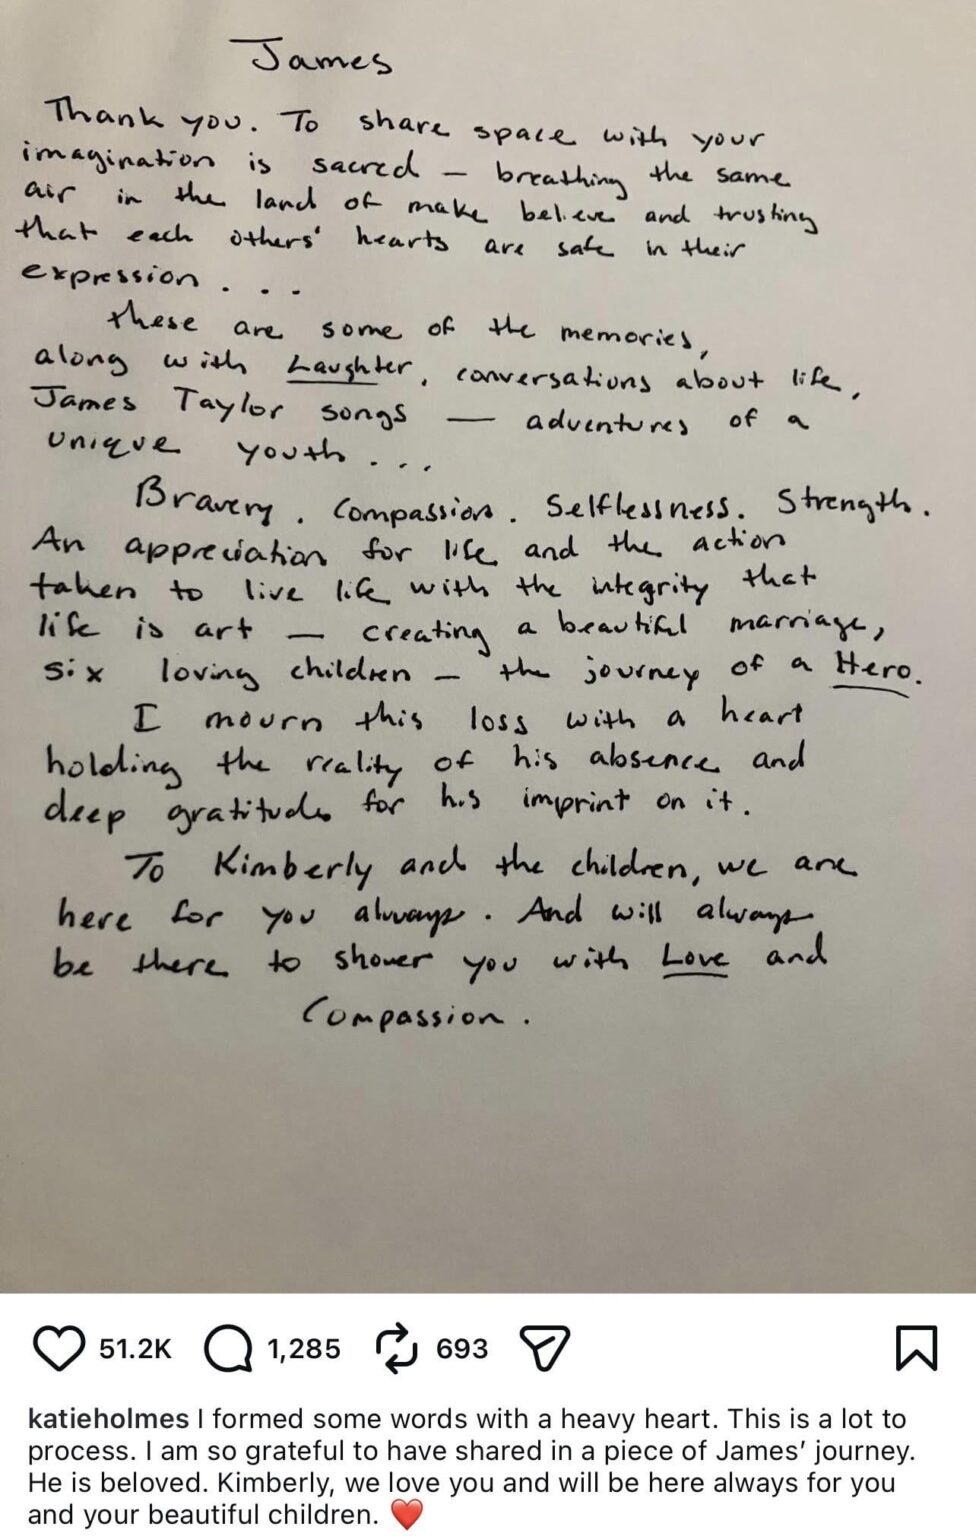 James
Thank you. To share space with your
imagination is sacred – breathing the same
air in the land of make believe and trusting
that each others' hearts are safe in their
expression . . .
these are some of the memories,
along with Laughter, conversations about life,
James Taylor songs — adventures of a
unique youth . . .
Bravery. Compassion. Selflessness. Strength.
An appreciation for life and the action
taken to live life with the integrity that
life is art – creating a beautiful marriage,
six loving children – the journey of a Hero.
I mourn this loss with a heart
holding the reality of his absence and
deep gratitude for his imprint on it.
To Kimberly and the children, we are
here for you always. And will always
be there to shower you with Love and
Compassion.
51.2K 1,285 693
katieholmes I formed some words with a heavy heart. This is a lot to
process. I am so grateful to have shared in a piece of James' journey.
He is beloved. Kimberly, we love you and will be here always for you
and your beautiful children. ❤️